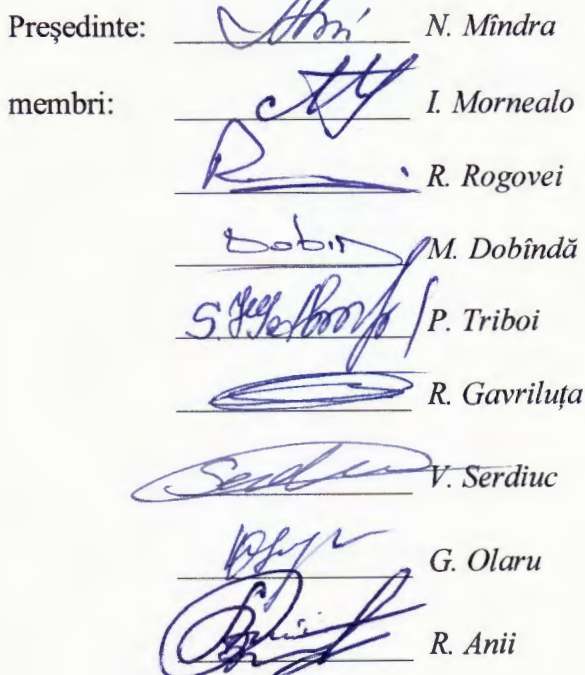 Președinte: N. Mîndra
membri: I. Mornealo
R. Rogovei
Dobîn M. Dobîndă
P. Triboi
R. Gavriluța
V. Serdiuc
G. Olaru
R. Anii